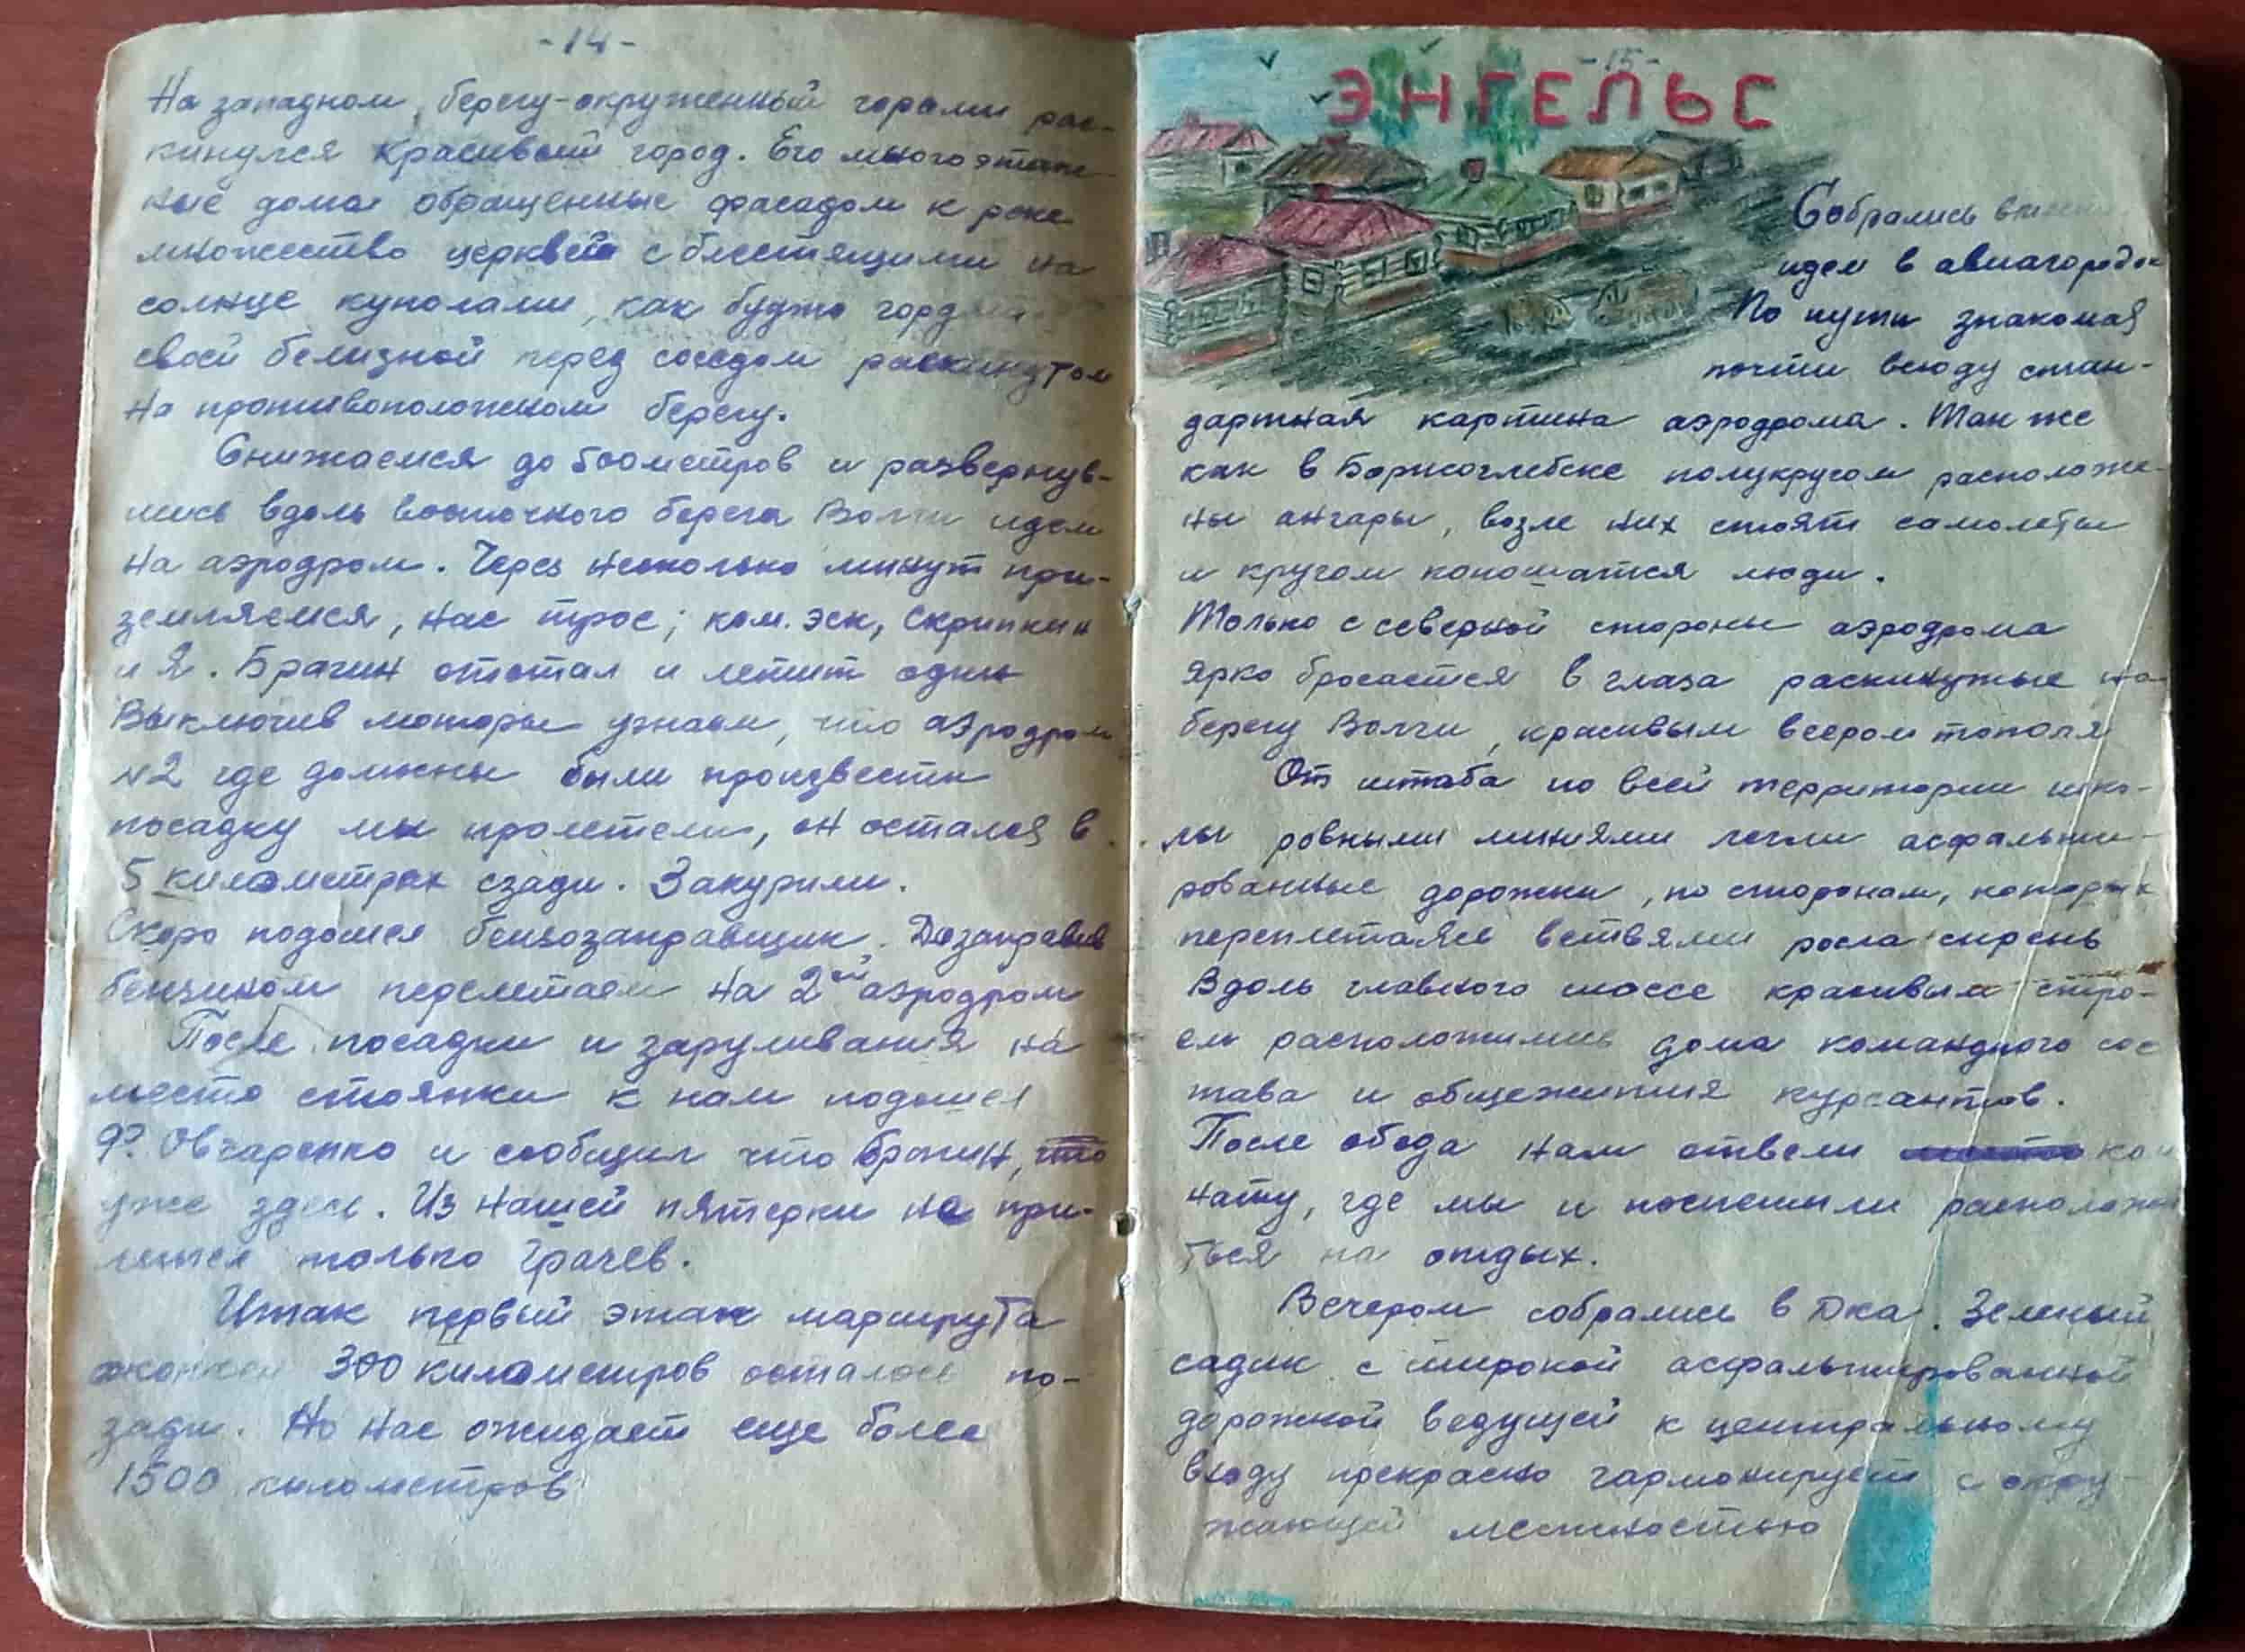 -14-
На западном берегу-окруженный горами рас-
кинулся красивый город. Его многоэтаж-
ные дома обращенные фасадом к реке
множество церквей с блестящими на
солнце куполами, как будто гордятся
своей белизной перед соседом раскинутом
на противоположном берегу.
Снижаемся до 600 метров и развернув-
шись вдоль восточного берега Волги идем
на аэродром. Через несколько минут при-
земляемся, нас трое; ком. эск, Скрипкин
и Я. Брагин отстал и летит один
Выключив моторы узнаем, что аэродром
№2 где должны были произвести
посадку мы пролетели, он остался в
5 километрах сзади. Закурили.
Скоро подошел бензозаправщик. Дозаправив
бензином перелетаем на 2ой аэродром
После посадки и заруливания на
место стоянки к нам подошел
Овчаренко и сообщил что Брагин, что
уже здесь. Из нашей пятерки не при-
шел только Грачев.
Итак первый этап маршрута
окончен 300 километров осталось по-
зади. Но нас ожидает еще более
1500 километров
-15-
ЭНГЕЛЬС
Собрались
идем в авиагородок
По пути знакомая
почти всюду стан-
дартная картина аэродрома. Так же
как в Борисоглебске полукругом расположе-
ны ангары, возле них стоят самолеты
и кругом копошатся люди.
Только с северной стороны аэродрома
ярко бросается в глаза раскинутые на
берегу Волги, красивым веером тополя
От штаба по всей территории шко-
лы ровными линиями легли асфальти-
рованные дорожки, по сторонам, которых
переплетаясь ветвями росла сирень
Вдоль главного шоссе красивым стро-
ем расположились дома командного сос
тава и общежития курсантов.
После обеда нам отвели ком
нату, где мы и поспешили расположи
ться на отдых.
Вечером собрались в Дка. Зеленый
садик с широкой асфальтированной
дорожкой ведущей к центральному
входу прекрасно гармонирует с окру-
жающей местностью